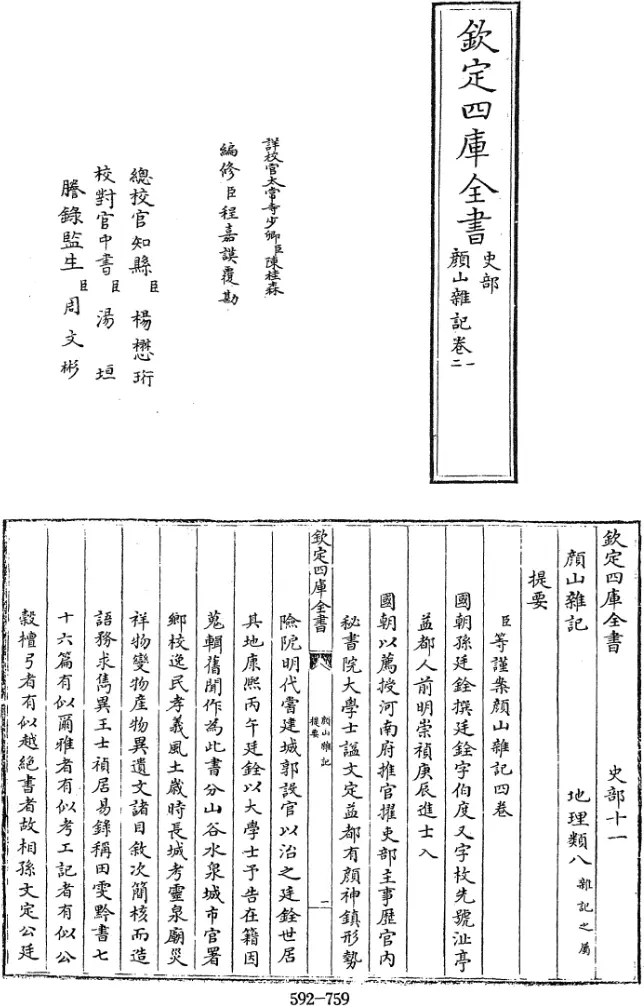 欽定四庫全書
史部
顏山雜記卷一二
詳校官太常寺少卿臣陳桂森
編修臣程嘉謨覆勘
總校官知縣臣楊懋珩
校對官中書臣湯垣
謄錄監生臣周文彬
欽定四庫全書 史部十一
顏山雜記 地理類八雜記之屬
提要
臣等謹案顏山雜記四卷
國朝孫廷銓撰廷銓字伯度又字枚先號沚亭
益都人前明崇禎庚辰進士入
國朝以薦授河南府推官擢吏部主事歷官內
秘書院大學士諡文定益都有顏神鎮形勢
欽定四庫全書 顏山雜記 提要 一
險阨明代嘗建城郭設官以治之廷銓世居
其地康熙丙午廷銓以大學士予告在籍因
蒐輯舊聞作為此書分山谷水泉城市官署
鄉校逸民孝義風土歲時長城考靈泉廟災
祥物變物產物異遺文諸目敘次簡核而造
語務求雋異王士禎居易錄稱田雯黔書七
十六篇有似爾雅者有似考工記者有似公
穀檀弓者有似越絕書者故相孫文定公廷
592-759